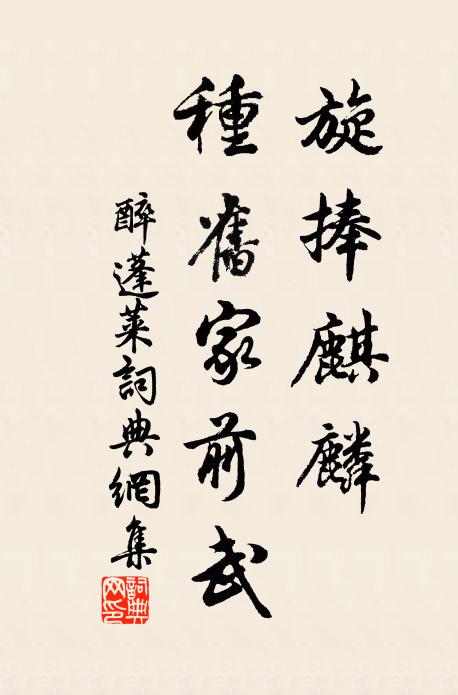 旋捧麒麟
種舊家前武
醉蓬萊詞典網集
詞典
网印